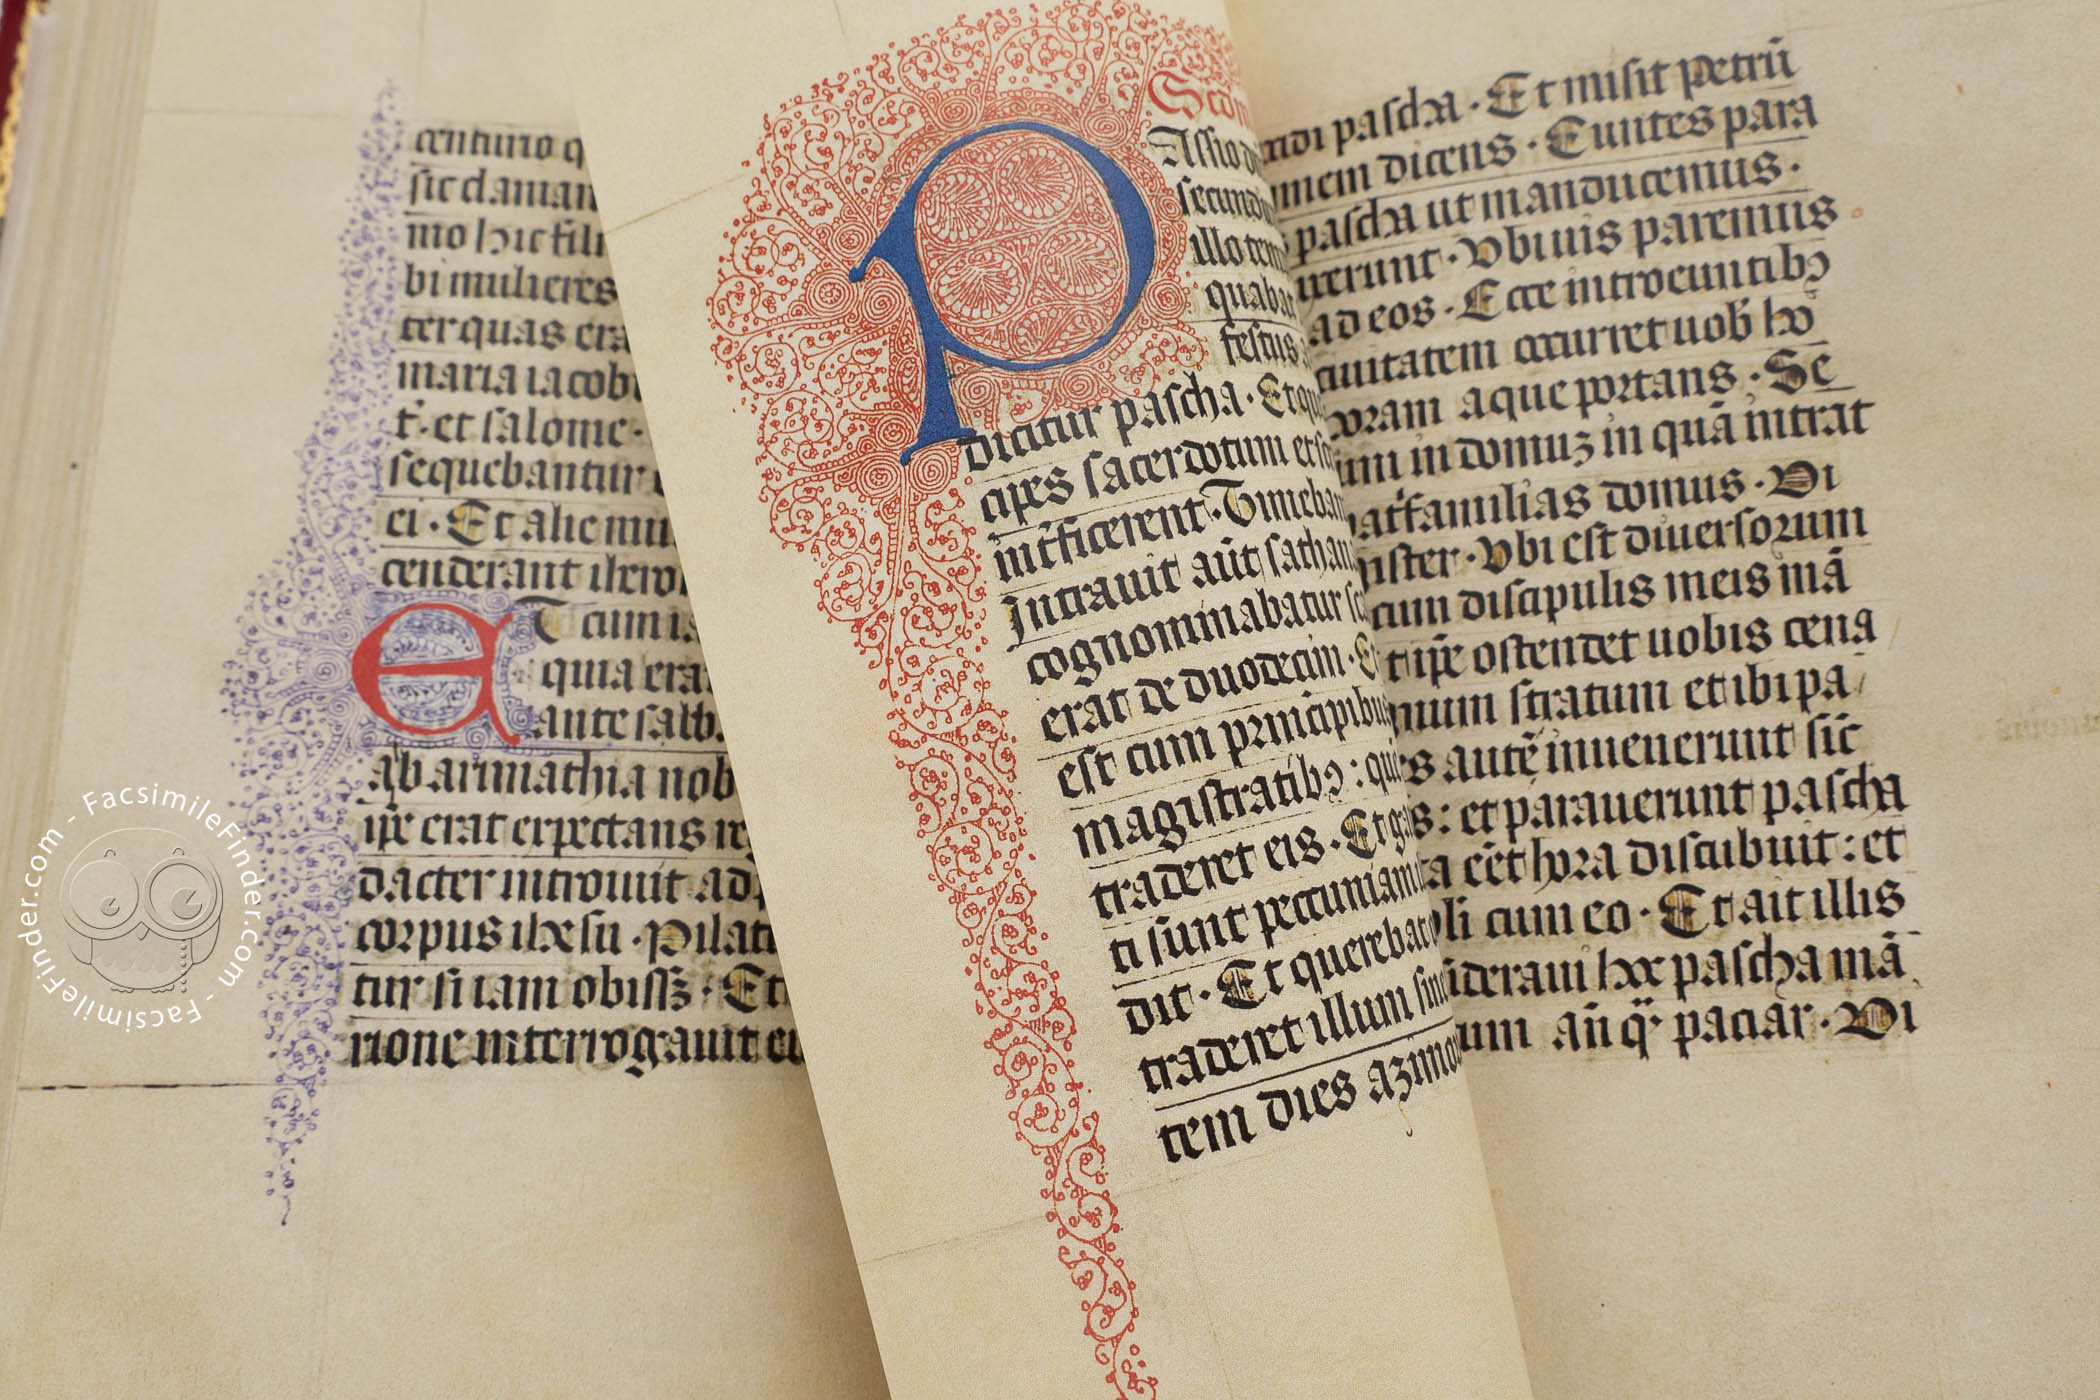 centurio q
sic claman
mo hic fili
bi mulieres
ter quas era
maria iacobi
t̄. et salome ·
sequebantur
ei · Et alie mul
cenderant ihero
ET cum ia
quia era
ante sabb
ab arimathia nob
ip̄e erat expectans re
dacter introiuit ad p
corpus ihesu · Pilat
tur si iam obissꝫ · Et
rione interrogauit cu
Scdm
PAssio d
secund
illo tem
quaba
festus
dicitur pascha · Et qu
cipes sacerdotum et sc
int̄ficerent · Timeban
Intrauit aūt sathan
cognominabatur sc
erat de duodecim · E
est cum principibus
magistratibꝫ : que
traderet eis · Et ga
ti sunt peccuniam
dit · Et querebat
traderet illum sine
tem dies azimo
di pascha · Et misit petrū
mem dicens · Euntes para
pascha ut manducemus ·
xerunt · Vbi uis paremus
ad eos · Ecce introeuntibꝫ
ciuitatem occurret uob̄ hō
oram aque portans · Se
mi in domuꝫ in quā intrat
at̄familias domus · Di
ister · Vbi est diuersorum
cum discipulis meis mā
t ip̄e ostendet uobis cena
num stratum et ibi pa
s autē inuenerunt sic̄
s : et parauerunt pascha
ta eēt hora discubuit : et
li cum eo · Et ait illis
ideraui hoc pascha mā
um añ q̄ paciar · Di
FacsimileFinder.com - FacsimileFinder.com -